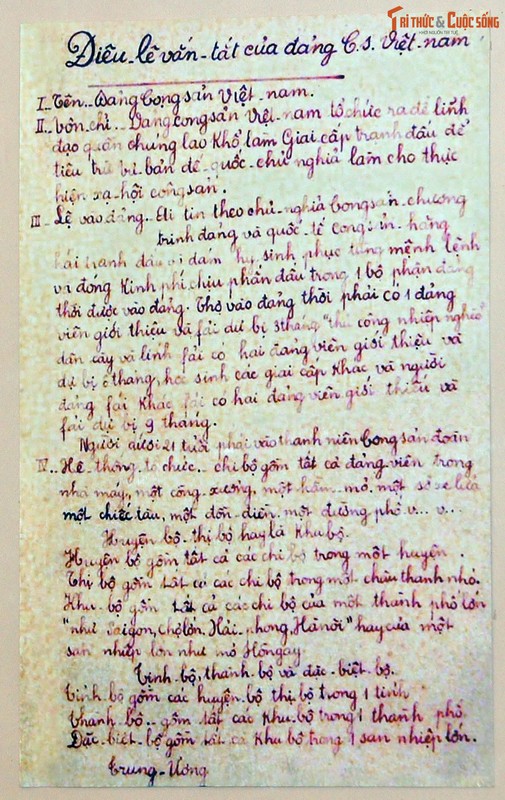 TRI THỨC & CUỘC SỐNG
Điều-lệ vắn-tát của đảng C.S. Việt-nam
I_ Tên.. Đảng Cộng sản Việt-nam.
II.. Vôn chỉ.. Đảng cộng sản Việt-nam tổ chức ra để lĩnh
đạo quần chúng lao khổ làm Giai cấp tranh đấu để
tiêu trừ tư bản đế-quốc-chủ nghĩa làm cho thực
hiện xã-hội cộng sản.
III_ Lệ vào đảng.. tin theo chủ-nghĩa Cộng sản, chương
trình đảng và quốc-tế Cộng sản-hăng
hái tranh đấu và dám hy sinh phục tùng mệnh lệnh
và đóng Kinh phí, chịu phấn đấu trong 1 bộ phận đảng
thời được vào đảng. Thợ vào đảng thời phải có 1 đảng
viên giới thiệu và fải dự bị 3 tháng "thủ công nhiệp nghèo
dân cầy và lính fải có hai đảng viên giới thiệu và
dự bị 6 tháng, học sinh các giai cấp Khác và người
đảng fái Khác fải có hai đảng viên giới thiệu và
fải dự bị 9 tháng.
Người dưới 21 tuổi phải vào thanh niên Cộng sản đoàn
IV.. Hệ-thống tổ chức.. chi bộ gồm tất cả đảng-viên trong
nhà máy, một công-xưởng, một hầm-mỏ, một sở xe lửa
một chiếc tầu, một đồn-điền, một đường phố v... v...
Huyện bộ, thị bộ hay là Khu bộ.
Huyện bộ gồm tất cả các chi bộ trong một huyện.
Thị bộ gồm tất cả các chi bộ trong một châu thành nhỏ.
Khu-bộ gồm tất cả các chi bộ của một thành phố lớn
"như Saigon, chợ lớn, Hải-phòng, Hà nội" hay của một
sản nhiệp lớn như mỏ Hồngay
Tỉnh-bộ, thành-bộ và đặc-biệt-bộ.
Tỉnh-bộ gồm các huyện-bộ thị bộ trong 1 tỉnh
Thành-bộ.. gồm tất các Khu bộ trong 1 thành phố
Đặc-biệt-bộ gồm tất cả Khu bộ trong 1 sản nhiệp lớn.
Trung-Ương